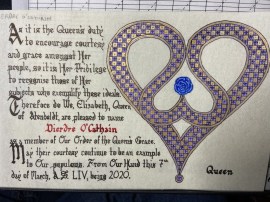 As it is the Queen's duty
to encourage courtesy
and grace amongst Her
people, so it is Her Privilege
to recognise those of Her
subjects who exemplify those ideals.
Therefore do We, Elizabeth, Queen
of Avenbeldt, are pleased to name
Dierdre O'Cathain
as a member of Our Order of the Queen's Grace.
May their courtesy continue to be an example
to Our populace. From Our Hand this 7th
day of March, A.S. LIV, being 2020.
Queen